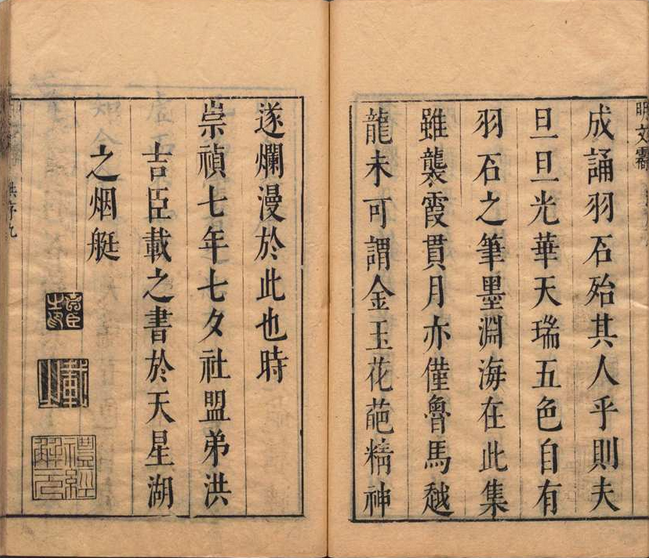 成誦羽石殆其人乎則夫
旦旦光華天瑞五色自有
羽石之筆墨淵海在此集
雖襲霞貫月亦僅魯馬越
龍未可謂金玉花葩精神
遂爛漫於此也時
崇禎七年七夕社盟弟洪
吉臣載之書於天星湖
之烟艇
明文霱
洪序九